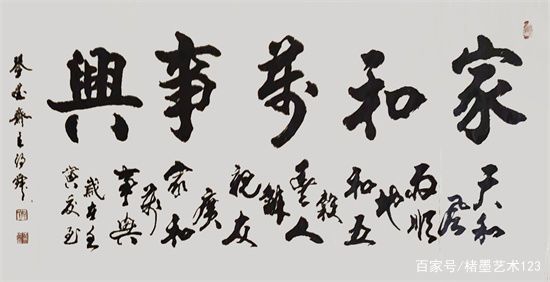 家和萬事興
天和風雨順
地和五穀豐
人和親友廣
家和萬事興
歲在壬寅夏
齋主
百家号/楮墨艺术123